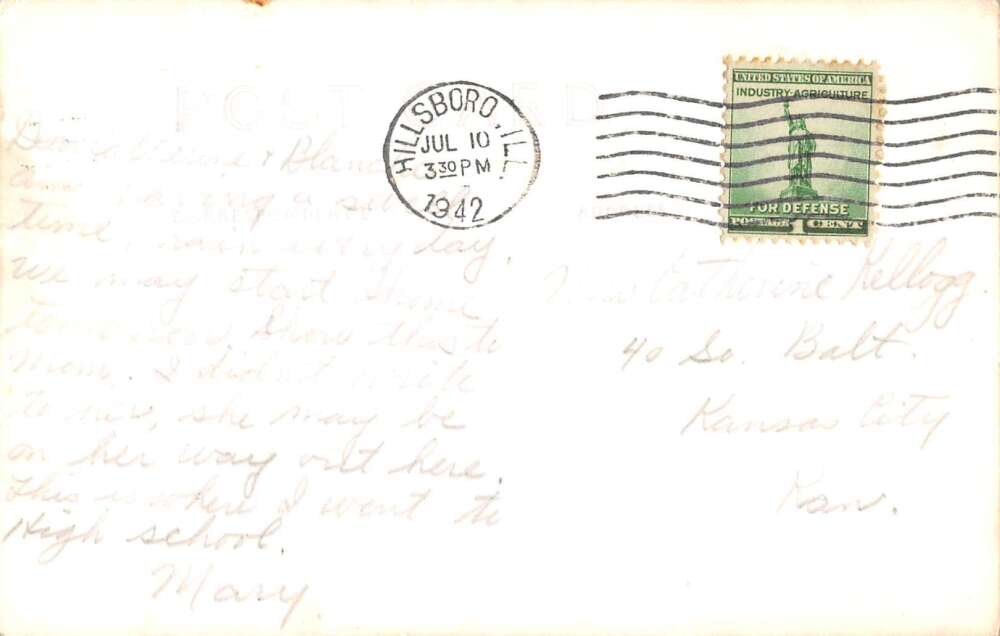 POST CARD
HILLSBORO, ILL.
JUL 10
3 30 PM
1942
UNITED STATES OF AMERICA
INDUSTRY-AGRICULTURE
FOR DEFENSE
POSTAGE 1 CENT
Dear Catherine & Blanche
am having a
time, rain every day,
we may start home
tomorrow, Show this to
Mom, I didn't write
to her, she may be
on her way out here.
This is where I went to
High school.
Mary
Catherine Kellogg
40 So. Balt.
Kansas City
Kan.